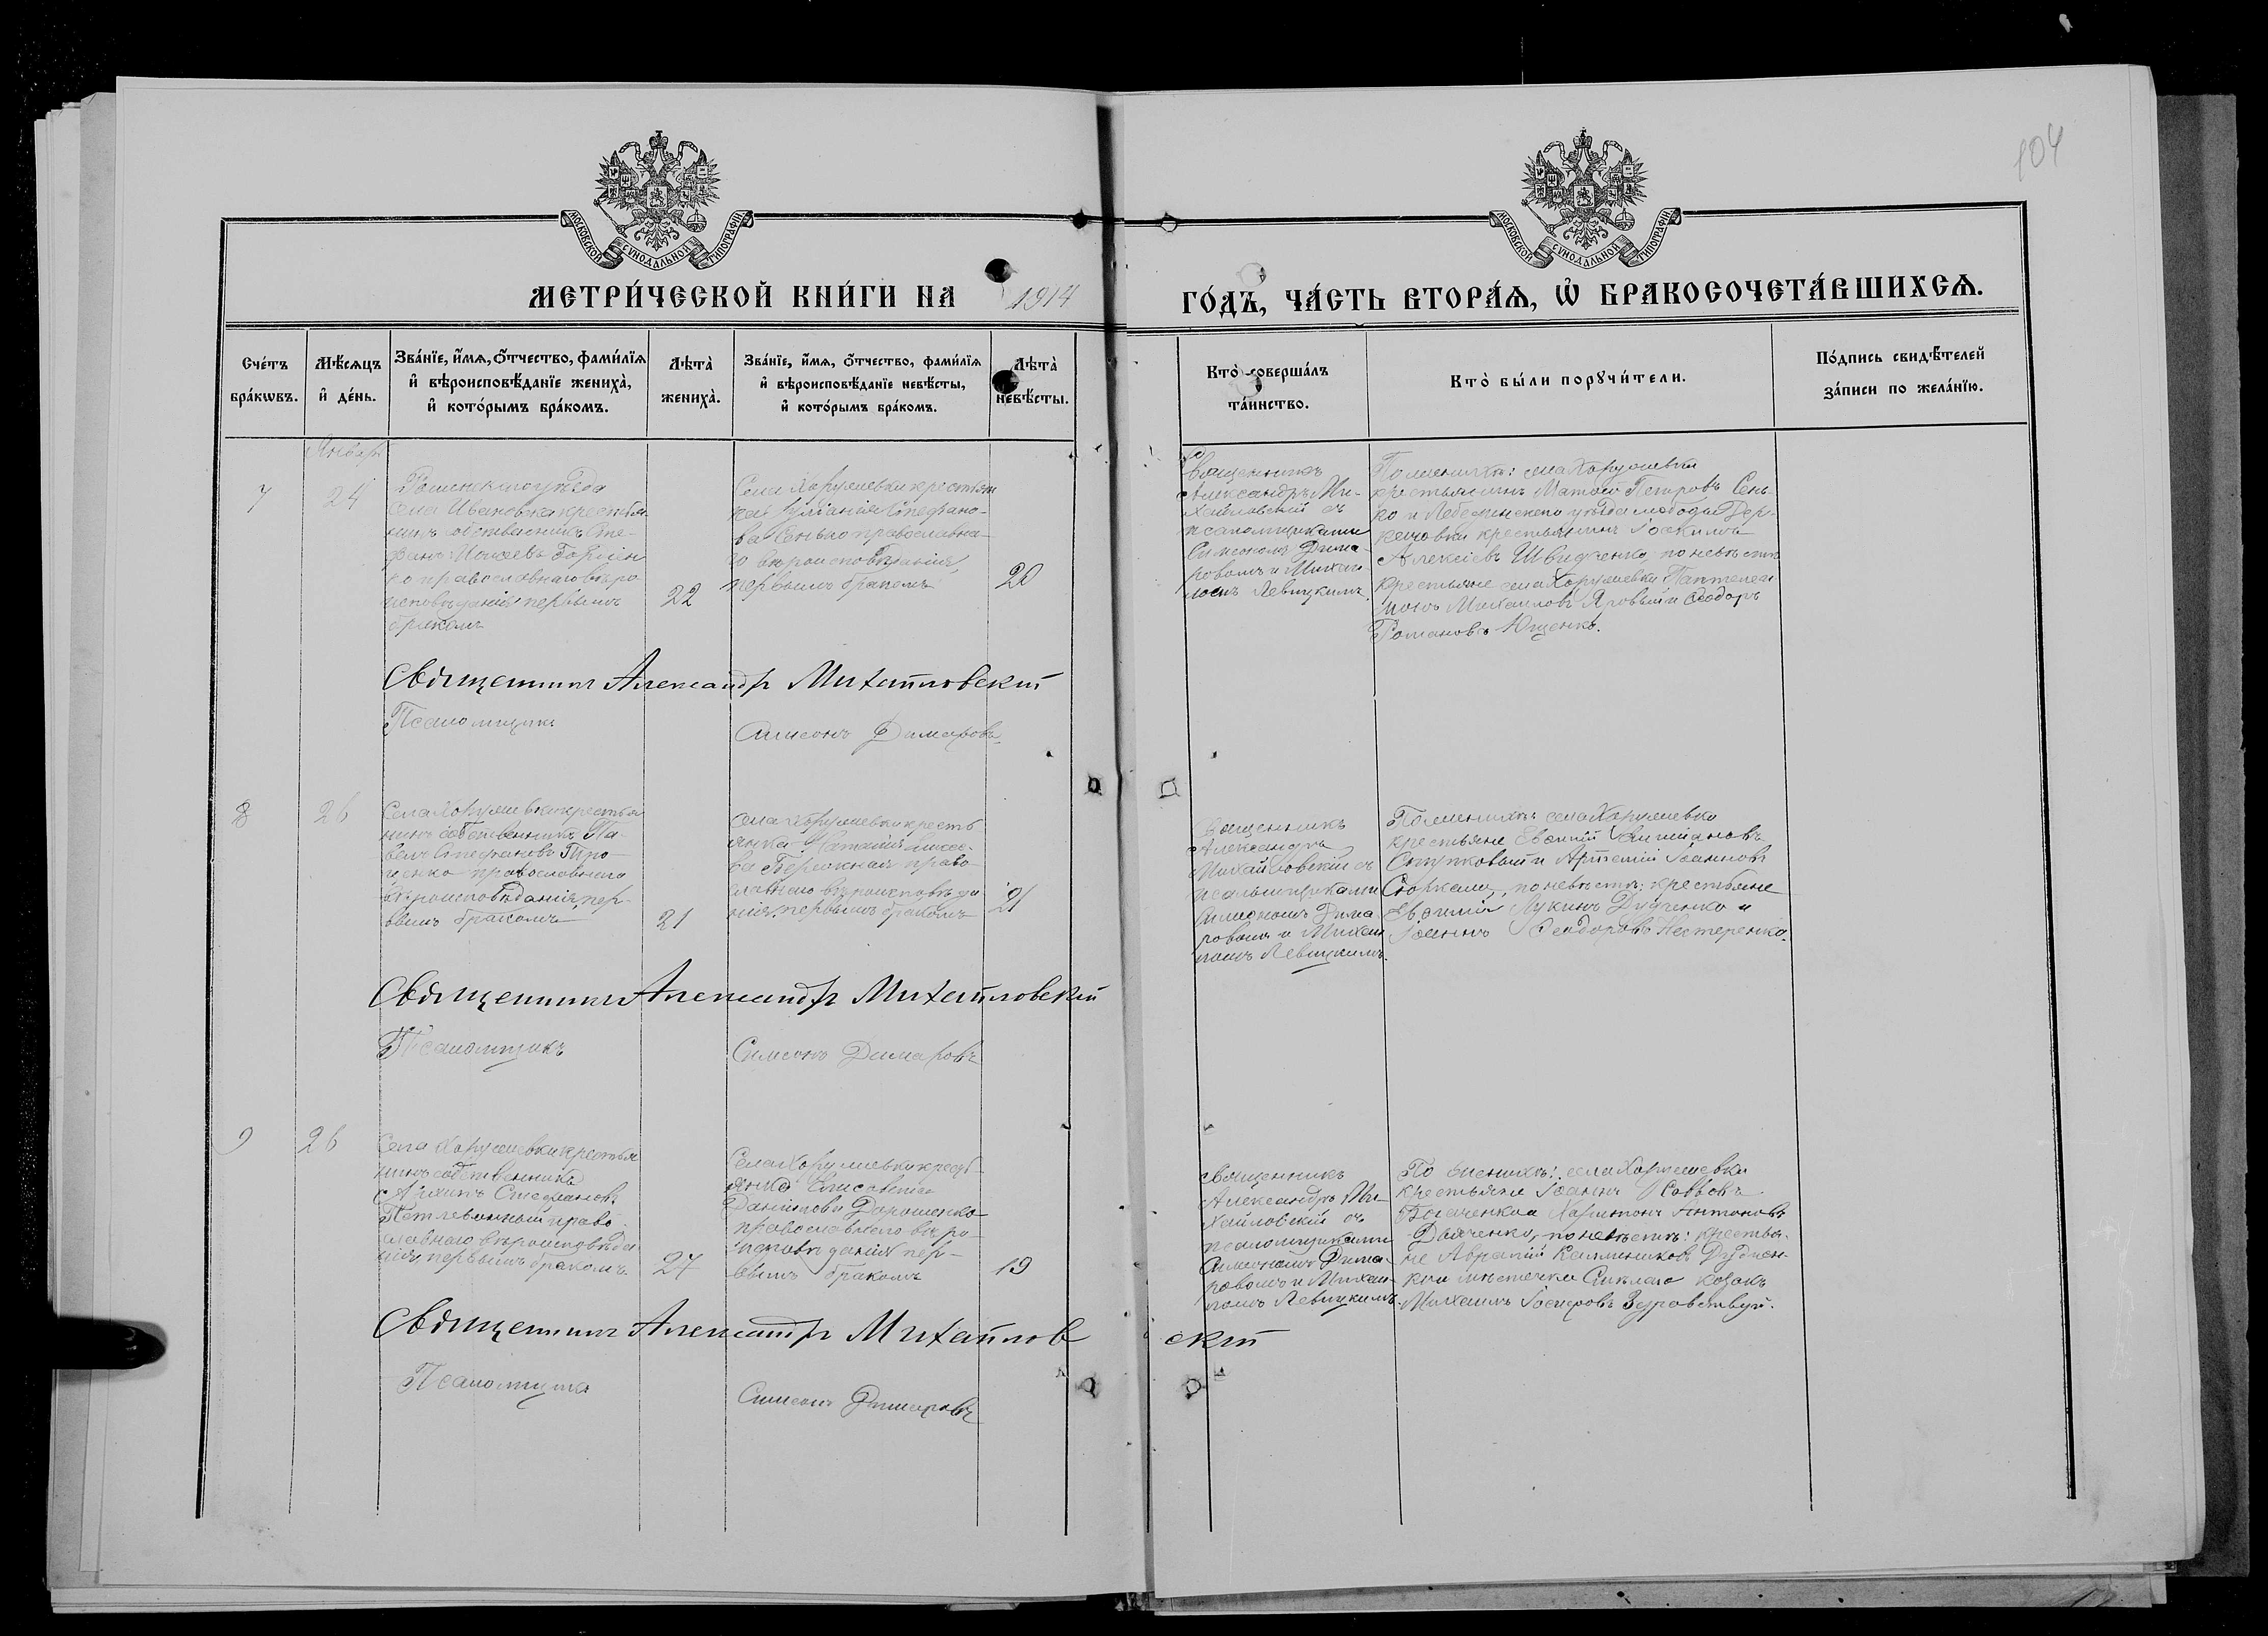 104
МОСКОВСКОЙ СѴНОДАЛЬНОЙ ТИПОГРАФІИ
МОСКОВСКОЙ СѴНОДАЛЬНОЙ ТИПОГРАФІИ
МЕТРИ́ЧЕСКОЙ КНИ́ГИ НА 1914
ГО́ДЪ, ЧА́СТЬ ВТОРА́Ѧ, Ѡ БРАКОСОЧЕТА́ВШИХСѦ.
Сче́тъ бра́кѡвъ.
Мѣ́сѧцъ и҆ де́нь.
Зва́нїе, и҆́мѧ, ѻ҆́тчество, фами́лїѧ
и҆ вѣроисповѣ́данїе жениха̀,
и҆ кото́рымъ бра́комъ.
Лѣта̀ жениха̀.
Зва́нїе, и҆́мѧ, ѻ҆́тчество, фами́лїѧ
и҆ вѣроисповѣ́данїе невѣ́сты,
и҆ кото́рымъ бра́комъ.
Лѣта̀ невѣ́сты.
Кто̀ соверша́лъ
та́инство.
Кто̀ бы́ли порꙋчи́тели.
По́дпись свидѣ́телей
за́писи по жела́нїю.
Январь
7
24
Роменскаго уѣзда
села Ивановка крестья
нинъ собственникъ Сте-
фанъ Моисеевъ
ко православнаго вѣро
исповѣданія, первымъ
бракомъ
22
Села Хорулевки крестьян
ка Іуліанія Стефано-
ва Сенько православна-
го вѣроисповѣданія,
первымъ бракомъ
20
Священникъ
Александръ Ми-
хайловскій съ
псаломщиками
Симеономъ Дима-
ровымъ и Михаи
ломъ Левицкимъ.
По женихѣ: села Хорулевки
крестьянинъ Матѳей Петровъ Сень
ко и Лебединскаго уѣзда слободы
крестьянинъ Іоакимъ
Алексіевъ Швидченко, по невѣстѣ
крестьяне села Хорулевки Пантелеи
монъ Михаиловъ Яровый и Ѳеодоръ
Романовъ Ющенко.
Священникъ Александръ Михайловскій
Псаломщикъ
Симеонъ Димаровъ
8
26
Села Хорулевки крестья
нинъ собственникъ Па-
велъ Стефановъ Про-
ценко православнаго
вѣроисповѣданія, пер-
вымъ бракомъ
21
Села Хорулевки кресть
янка Наталія
ва Бережная право
славнаго вѣроисповѣда
нія, первымъ бракомъ
21
Священникъ
Александръ
Михайловскій съ
псаломщиками
Симеономъ Дима
ровымъ и Михаи
ломъ Левицкимъ.
По женихѣ: села Хорулевки
крестьяне Евѳимій
и Артемій Іоанновъ
по невѣстѣ: крестьяне
Евѳимій Лукинъ Дудченко и
Іоаннъ Ѳеодоровъ Нестеренко.
Священникъ Александръ Михайловскій
Псаломщикъ
Симеонъ Димаровъ
9
26
Села Хорулевки крестья
нинъ собственникъ
Архипъ Стефановъ
Петлеванный право
славнаго вѣроисповѣда
нія, первымъ бракомъ
27
Села Хорулевки кресть
янка Елисавета
Даніилова Дорошенко
православнаго вѣро
исповѣданія пер-
вымъ бракомъ
19
Священникъ
Александръ Ми-
хайловскій съ
псаломщиками
Симеономъ Дима-
ровымъ и Михаи
ломъ Левицкимъ.
По женихѣ: села Хорулевки
крестьяне Іоаннъ Савовъ
и Харитонъ Антоновъ
Дьяченко, по невѣстѣ: крестья-
не Аврамій Каллиниковъ Дудчен-
ко и мѣстечка Смѣлаго козакъ
Михаилъ Іосифовъ Здравствуй.
Священникъ Александръ Михайловскій
Псаломщикъ
Симеонъ Димаровъ